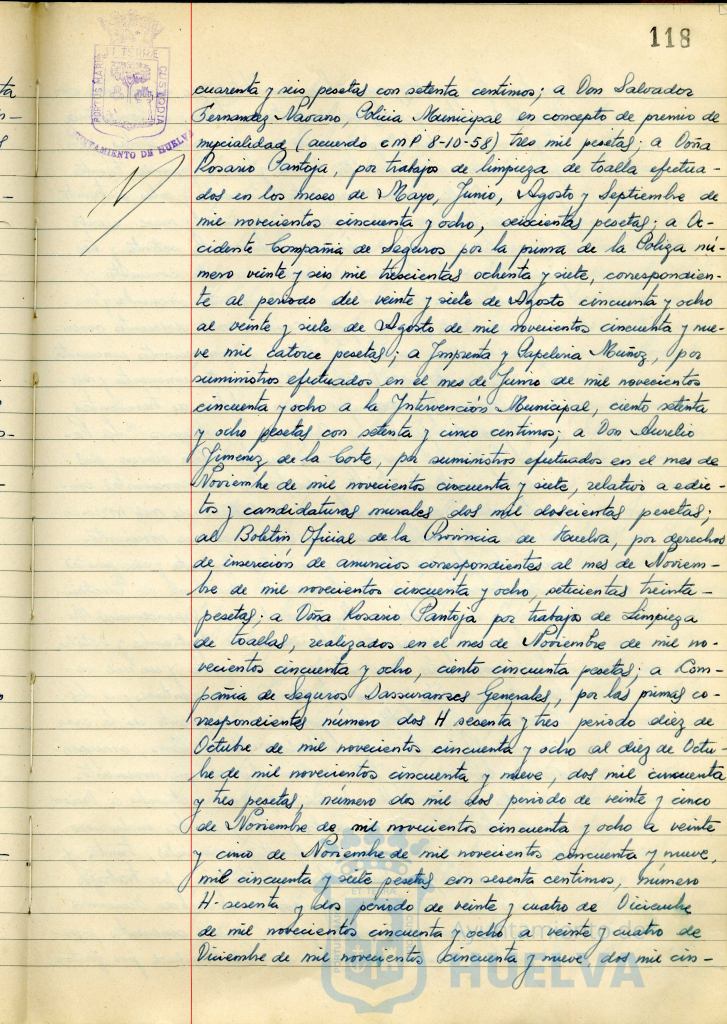 118
PORTUS MARIS
ET TERRE
CUSTODIA
AYUNTAMIENTO DE HUELVA
cuarenta y seis pesetas con setenta centimos; a Don Salvador
Fernandez Navarro, Policia Municipal en concepto de premio de
especialidad (acuerdo CMP 8-10-58) tres mil pesetas; a Doña
Rosario Pantoja, por trabajos de limpieza de toalla efectua-
dos en los meses de Mayo, Junio, Agosto y Septiembre de
mil novecientos cincuenta y ocho, seiscientas pesetas; a Oc-
cidente Compañia de Seguros por la prima de la Poliza nú-
mero veinte y seis mil trescientas ochenta y siete, correspondien-
te al periodo del veinte y siete de Agosto cincuenta y ocho
al veinte y siete de Agosto de mil novecientos cincuenta y nue-
ve mil catorce pesetas; a Imprenta y Papeleria Muñoz, por
suministros efectuados en el mes de Junio de mil novecientos
cincuenta y ocho a la Intervención Municipal, ciento setenta
y ocho pesetas con setenta y cinco centimos; a Don Aurelio
Jimenez de la Corte, por suministros efectuados en el mes de
Noviembre de mil novecientos cincuenta y siete, relativo a edic-
tos y candidaturas murales dos mil doscientas pesetas;
al Boletin Oficial de la Provincia de Huelva, por derechos
de inserción de anuncios correspondientes al mes de Noviem-
bre de mil novecientos cincuenta y ocho, setecientas treinta
pesetas; a Doña Rosario Pantoja por trabajo de Limpieza
de toallas, realizados en el mes de Noviembre de mil no-
vecientos cincuenta y ocho, ciento cincuenta pesetas; a Com-
pañia de Seguros Dassurances Generales, por las primas co-
rrespondientes número dos H sesenta y tres periodo diez de
Octubre de mil novecientos cincuenta y ocho al diez de Octu-
bre de mil novecientos cincuenta y nueve, dos mil cincuenta
y tres pesetas, número dos mil dos periodo de veinte y cinco
de Noviembre de mil novecientos cincuenta y ocho a veinte
y cinco de Noviembre de mil novecientos cincuenta y nueve,
mil cincuenta y siete pesetas con sesenta centimos, número
H- sesenta y dos periodo de veinte y cuatro de Diciembre
de mil novecientos cincuenta y ocho a veinte y cuatro de
Diciembre de mil novecientos cincuenta y nueve, dos mil cin-
Ayuntamiento
HUELVA